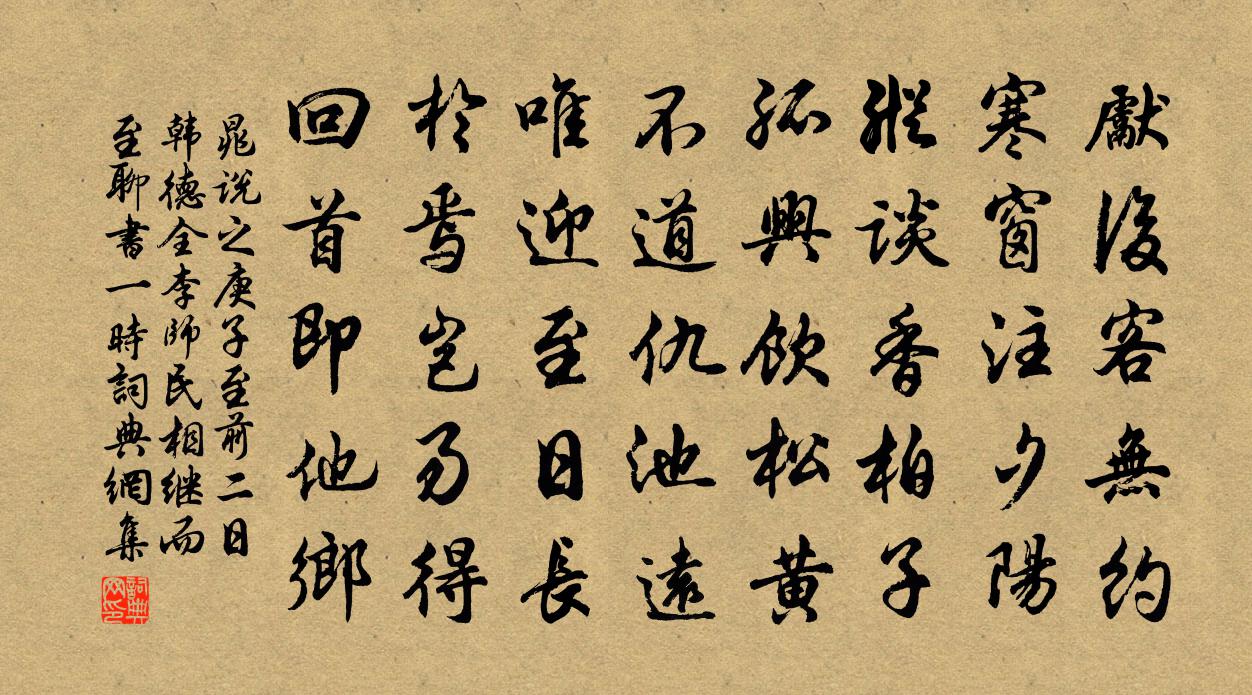 獻後客無約
寒窗注夕陽
縱談香柏子
孤興飲松黃
不道仇池遠
唯迎至日長
於焉豈易得
回首即他鄉
晁说之庚子至前二日
韩德全李師民相继而
至聊書一時詞典網集
詞典网印